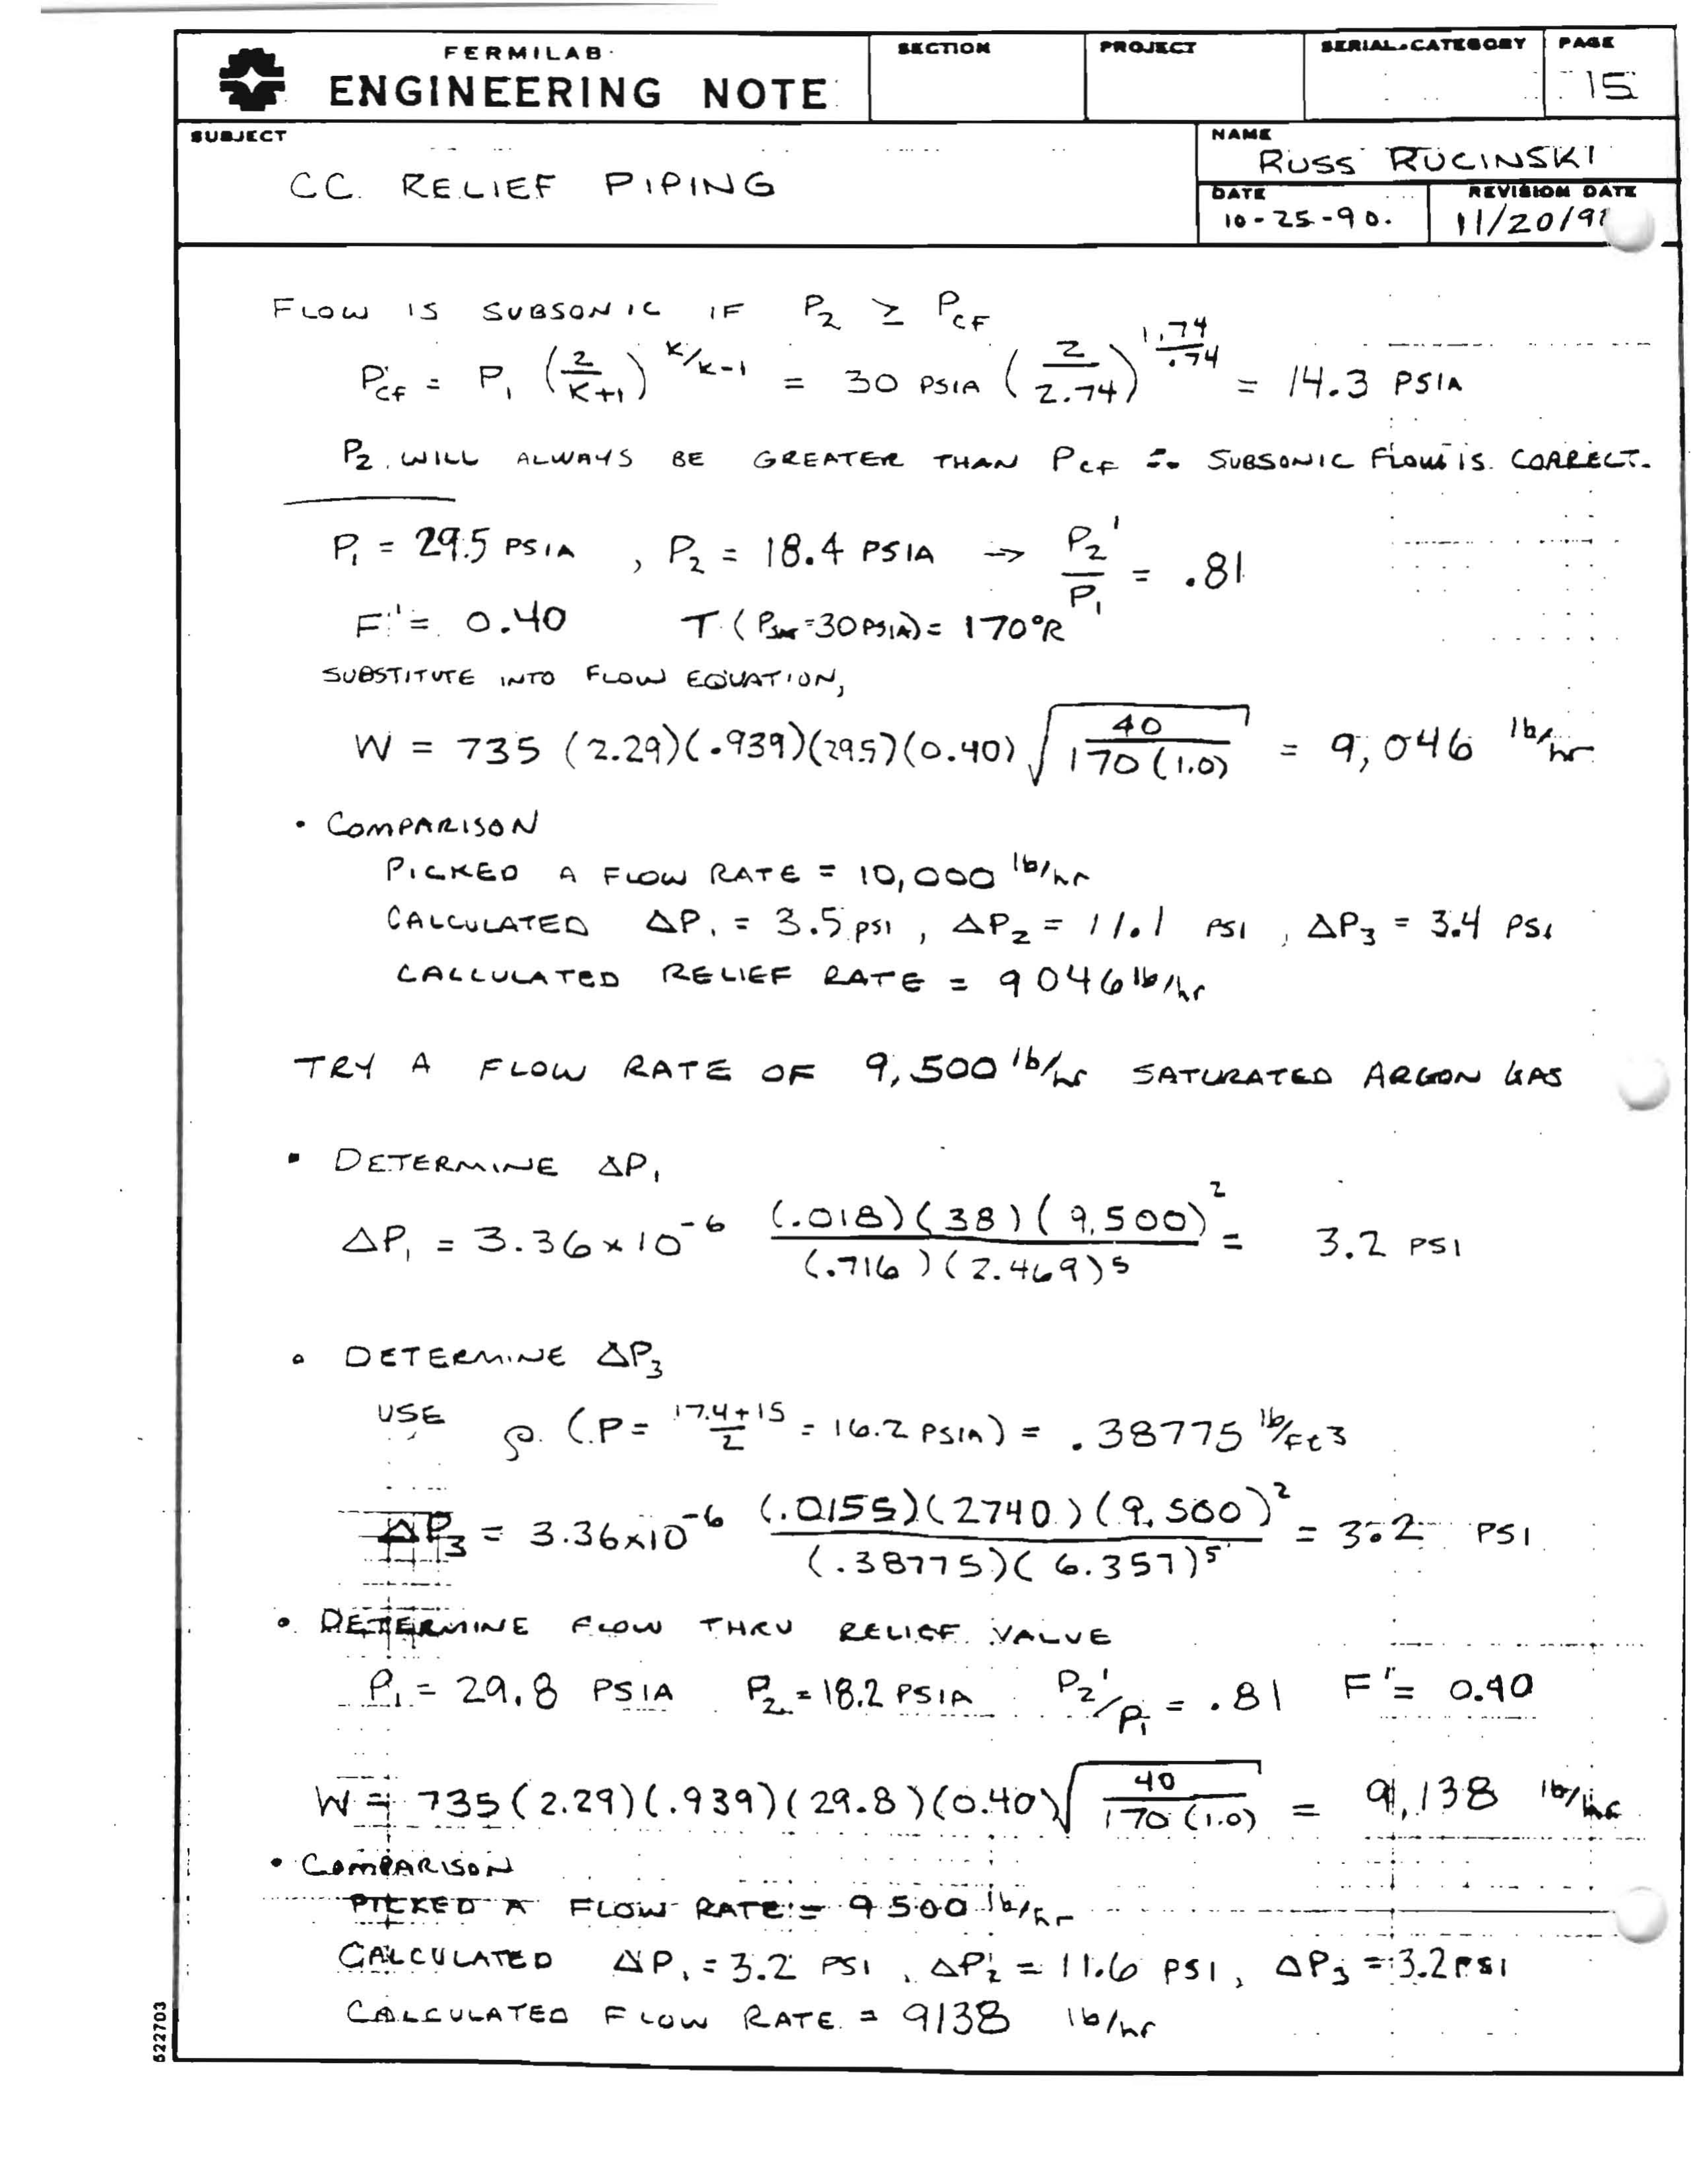 FERMILAB
ENGINEERING NOTE
SECTION
PROJECT
SERIAL-CATEGORY
PAGE
15
SUBJECT
CC. RELIEF PIPING
NAME
RUSS RUCINSKI
DATE
10-25-90.
REVISION DATE
11/20/9
FLOW IS SUBSONIC IF P₂ ≥ P_CF
P_CF = P₁ (2/K+1)^K/K-1 = 30 PSIA (2/2.74)^1.74/.74 = 14.3 PSIA
P₂ WILL ALWAYS BE GREATER THAN P_CF ∴ SUBSONIC FLOW IS CORRECT.
P₁ = 29.5 PSIA , P₂ = 18.4 PSIA → P₂'/P₁ = .81
F' = 0.40 T (P_SAT=30PSIA) = 170°R
SUBSTITUTE INTO FLOW EQUATION,
W = 735 (2.29)(.939)(29.5)(0.40) √(40/170(1.0)) = 9,046 lb/hr
• COMPARISON
PICKED A FLOW RATE = 10,000 lb/hr
CALCULATED ΔP₁ = 3.5 psi , ΔP₂ = 11.1 PSI , ΔP₃ = 3.4 PSI
CALCULATED RELIEF RATE = 9046 lb/hr
TRY A FLOW RATE OF 9,500 lb/hr SATURATED ARGON GAS
• DETERMINE ΔP₁
ΔP₁ = 3.36×10⁻⁶ (.018)(38)(9,500)²/(.716)(2.469)⁵ = 3.2 PSI
• DETERMINE ΔP₃
USE ρ (P = 17.4+15/2 = 16.2 PSIA) = .38775 lb/Ft3
ΔP₃ = 3.36×10⁻⁶ (.0155)(2740)(9,500)²/(.38775)(6.357)⁵ = 3.2 PSI
• DETERMINE FLOW THRU RELIEF VALVE
P₁ = 29.8 PSIA P₂ = 18.2 PSIA P₂'/P₁ = .81 F' = 0.40
W = 735 (2.29)(.939)(29.8)(0.40) √(40/170(1.0)) = 9,138 lb/hr
• COMPARISON
PICKED A FLOW RATE = 9500 lb/hr
CALCULATED ΔP₁ = 3.2 PSI , ΔP₂ = 11.6 PSI, ΔP₃ = 3.2 PSI
CALCULATED FLOW RATE = 9138 lb/hr
522703